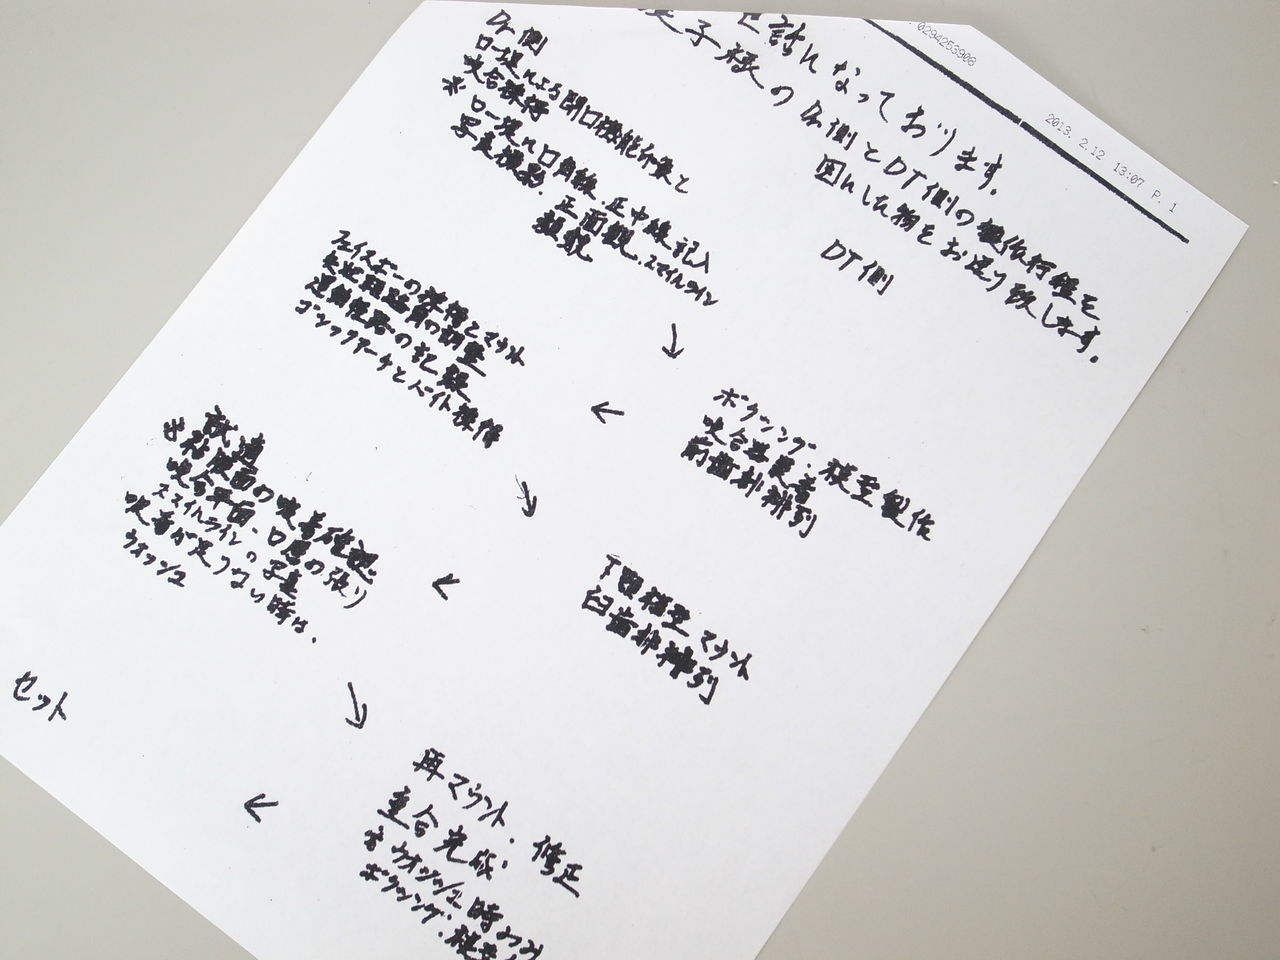 0294253908
2013. 2.12 13:07 P. 1
世話になっております。
子様のDr側とDT側の製作行程を
図にした物をお送り致します。
Dr側
ロー堤による閉口機能印象と
咬合採得
※ロー堤に口角線.正中線記入
写真撮影.正面観.スマイルライン
DT側
ボクシング.模型製作
咬合器装着
前歯部排列
フェイスボーの採得とマウント
運動経路の記録
ゴシックアーチとバイト採得
下顎模型マウント
臼歯部排列
試適
粘膜面の吸着確認
咬合平面.口唇の張り
スマイルラインの写真
吸着が足りない時は.
ウオッシュ
再マウント.修正
重合完成.
※ウオッシュ時のみ
ボクシング.模型
セット